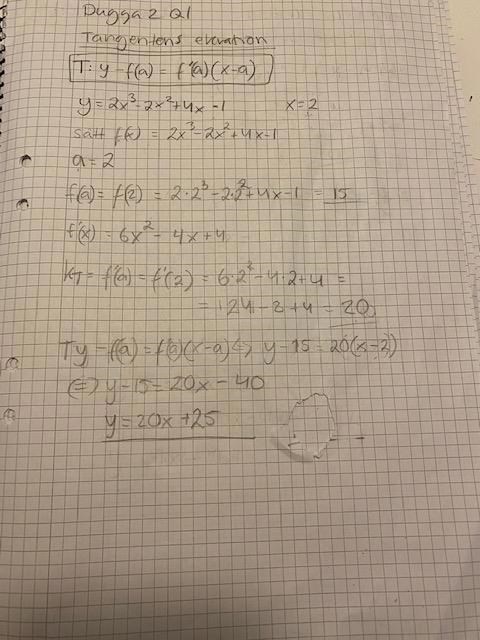 Dugga 2 Q1
Tangentens ekvation
T: y-f(a) = f'(a)(x-a)
y=2x³-2x²+4x-1 x=2
sätt f(x) = 2x³-2x²+4x-1
a=2
f(a)=f(2) = 2·2³-2·2²+4x-1 = 15
f'(x) = 6x²-4x+4
kT=f'(a)=f'(2) = 6·2²-4·2+4 =
= 24-8+4=20
Ty-f(a)=f'(a)(x-a)⇔ y-15=20(x-2)
⇔ y-15=20x-40
y=20x+25